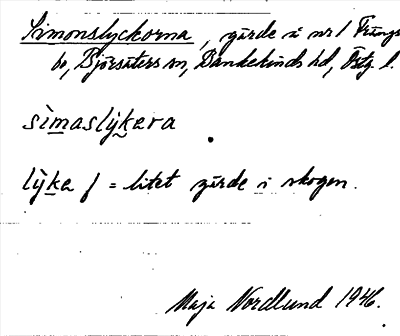 Simonslyckorna, gärde i nr 1 Frings
bo, Björsäters sn, Bankekinds hd, Östg l.
sìmaslỳkera
lỳka f = litet gärde i skogen.
Maja Nordlund 1946.